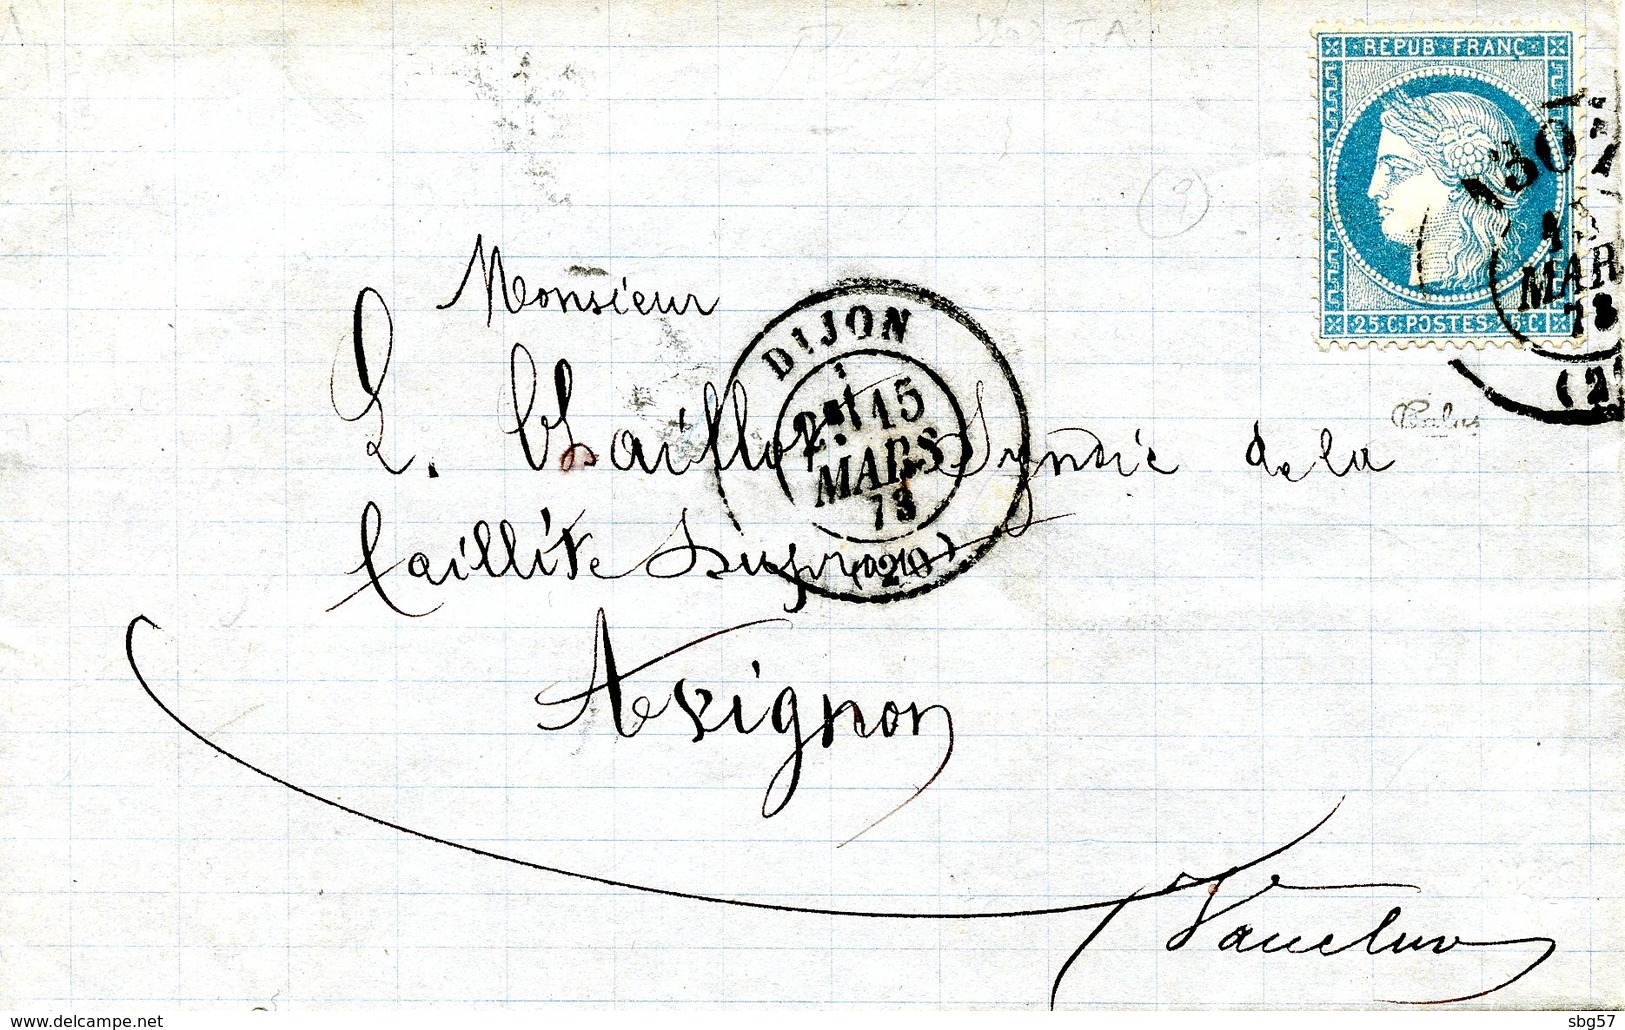 REPUB FRANC
25 C POSTES 25 C
1307
15
MAR
73
(2
Calves
(9)
Monsieur
DIJON
2E 15
MARS
73
(20)
L. Chaillot Syndic de la
faillite
Avignon
Vaucluse
www.delcampe.net
sbg57